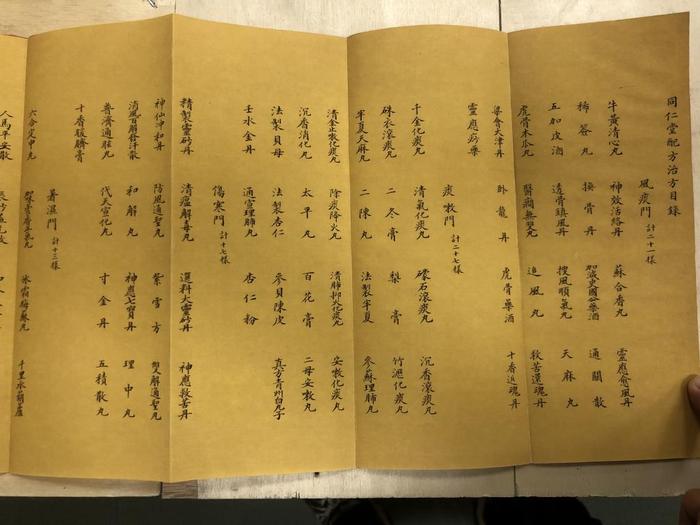 同仁堂配方治方目錄
風痰門 計二十一樣
牛黃清心丸 神效活絡丹 蘇合香丸 靈應愈風丹
稀薟丸 換骨丹 加減史國公藥酒 通關散
五加皮酒 透骨鎮風丹 搜風順氣丸 天麻丸
虎骨木瓜丸 醫癇無雙丸 追風丸 救苦還魂丹
梁會大津丹 臥龍丹 虎骨藥酒 十香返魂丹
靈應痧藥
痰嗽門 計二十七樣
千金化痰丸 清氣化痰丸 礞石滾痰丸 沉香滾痰丸
硃衣滾痰丸 二冬膏 梨膏 竹瀝化痰丸
半夏天麻丸 二陳丸 法製半夏 參蘇理肺丸
清金止嗽化痰丸 除痰降火丸 清肺抑火化痰丸 安嗽化痰丸
沉香消化丸 太平丸 百花膏 二母安嗽丸
法製貝母 法製杏仁 參貝陳皮 真方青州白丸子
壬水金丹 通宣理肺丸 杏仁粉
傷寒門 計十七樣
精製靈砂丹 清瘟解毒丸 選料大靈砂丹 神應救苦丹
神仙沖和丹 防風通聖丸 紫雪方 人解通聖丸
消風百解發汗散 和解丸 神應七寶丹 理中丸
普濟通眩丸 代天宣化丸 寸金丹 五積散丸
十香暖臍膏
暑濕門 計十三樣
六合定中丸 冰霜梅蘇丸 千里水葫蘆
人馬平安散